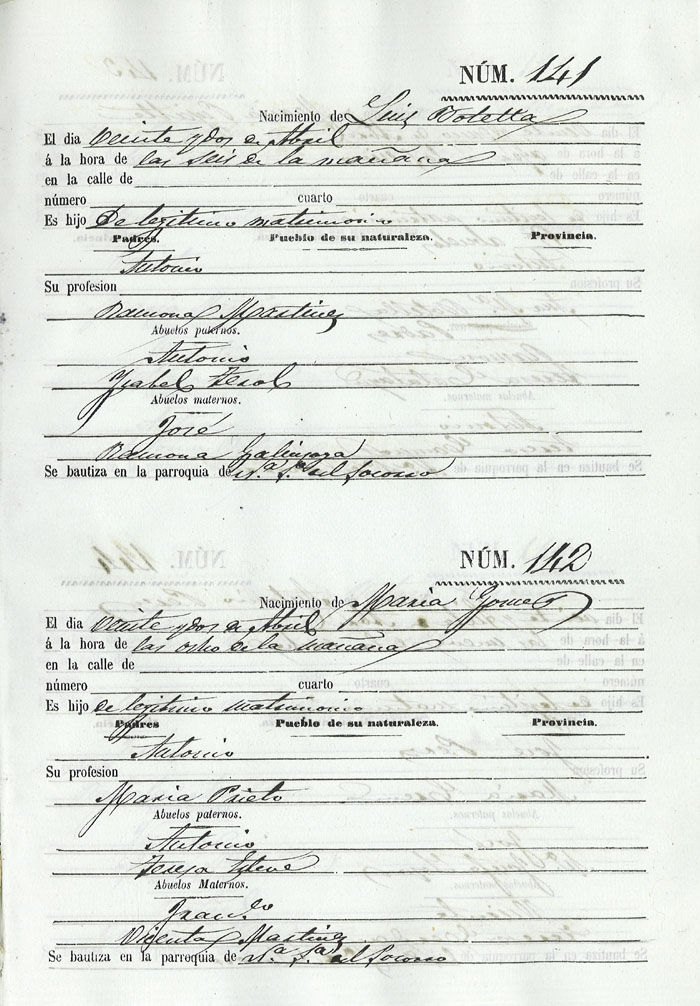 NÚM. 141
Nacimiento de Luis Boletta
El dia Veinte y dos de Abril
á la hora de las seis de la mañana
en la calle de
número cuarto
Es hijo De legitimo matrimonio
Padres. Pueblo de su naturaleza. Provincia.
Antonio
Su profesion
Ramona Martinez
Abuelos paternos.
Antonio
Ysabel Terol
Abuelos maternos.
José
Ramona
Se bautiza en la parroquia de N.a S.a del Socorro
NÚM. 142
Nacimiento de Maria Gomez
El dia Veinte y dos de Abril
á la hora de las ocho de la mañana
en la calle de
número cuarto
Es hijo de legitimo matrimonio
Padres Pueblo de su naturaleza. Provincia.
Antonio
Su profesion
Maria Prieto
Abuelos paternos.
Antonio
Teresa Esteve
Abuelos Maternos.
Fran.co
Vicenta Martinez
Se bautiza en la parroquia de N.a S.a del Socorro